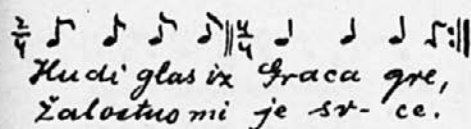 2/4 4/4
Hudi glas iz Graca gre,
Žalostno mi je sr- ce.